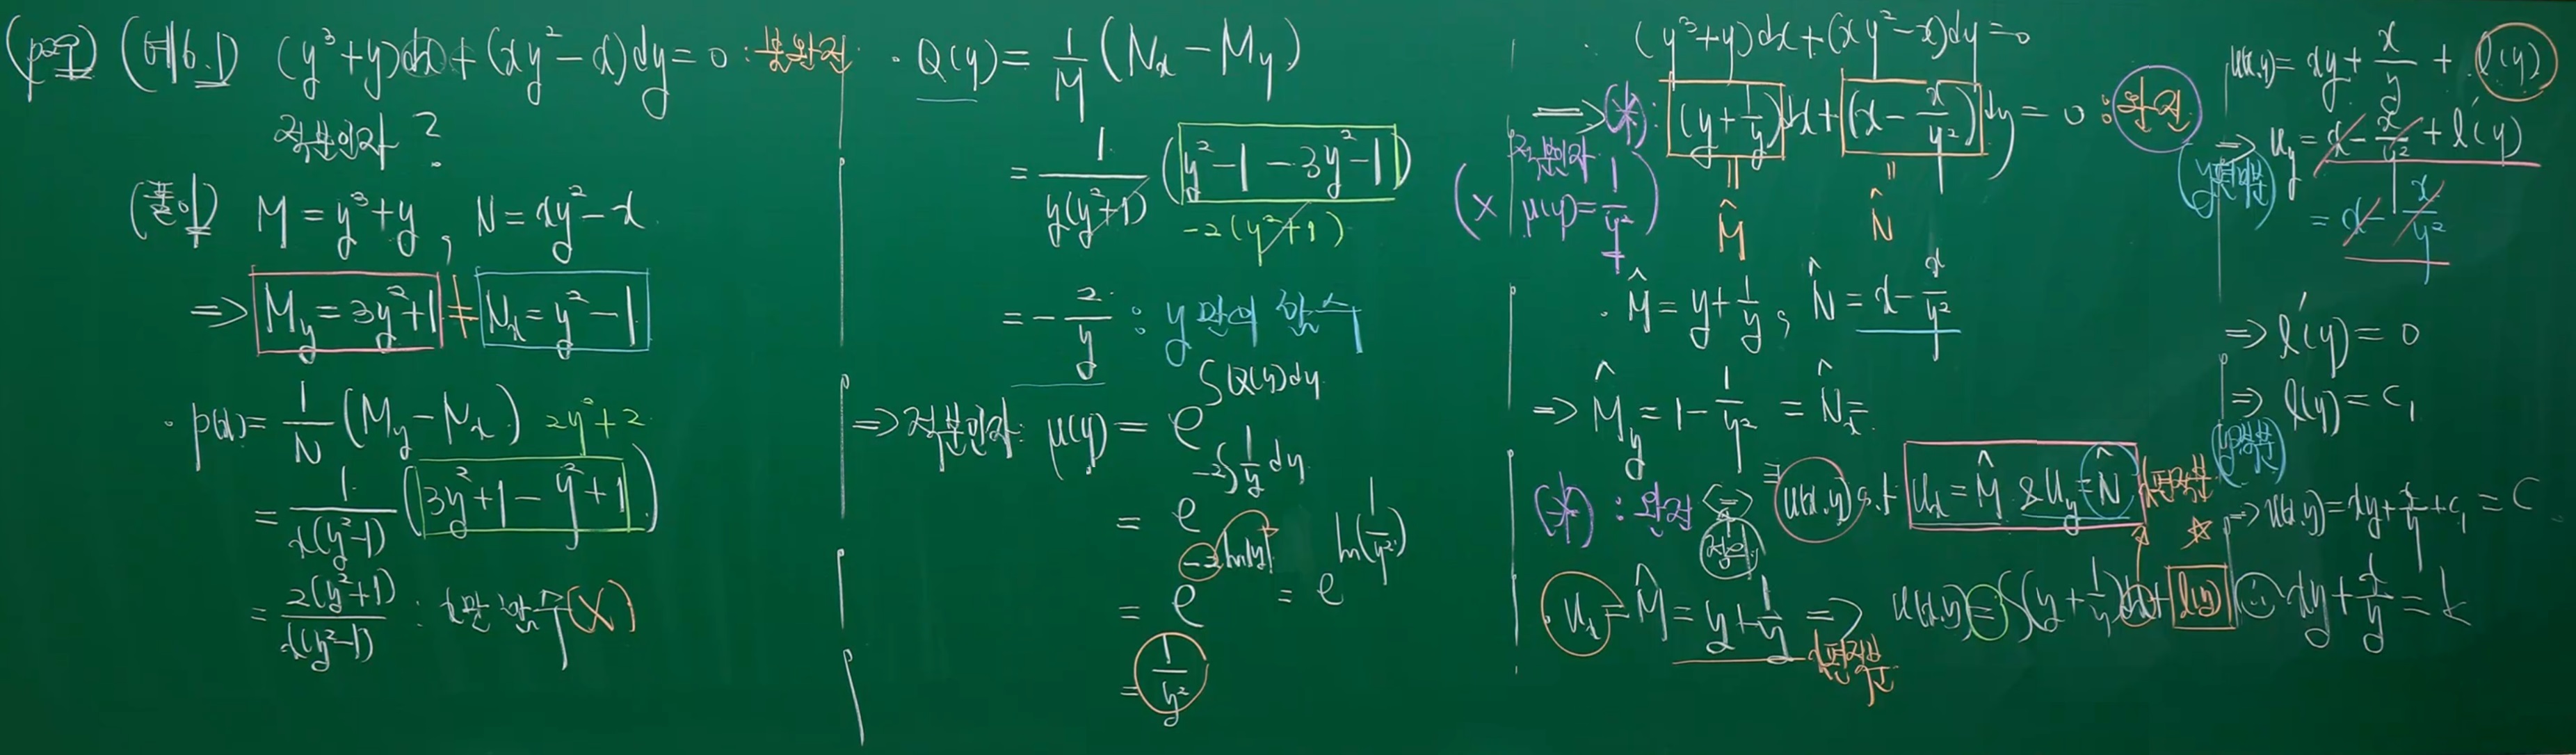 (p29) (예6.1) (y³+y)dx+(xy²-x)dy=0 : 불완전
적분인자?
(풀이) M=y³+y, N=xy²-x
⇒ M_y=3y²+1 ≠ N_x=y²-1
· p(x)=1/N (M_y-N_x) 2y²+2
= 1/x(y²-1) (3y²+1-y²+1)
= 2(y²+1)/x(y²-1) : x만 함수(X)
· Q(y)=1/M (N_x-M_y)
= 1/y(y²+1) (y²-1-3y²-1)
-2(y²+1)
= -2/y : y만의 함수
⇒ 적분인자: μ(y)=e^∫Q(y)dy
= e^-2∫1/y dy
= e^-2ln|y| = e^ln(1/y²)
= 1/y²
· (y³+y)dx+(xy²-x)dy=0
⇒ (*): (y+1/y)dx+(x-x/y²)dy=0 : 완전
(× 적분인자 μ(y)=1/y²)
‖ ‖
M̂ N̂
· M̂=y+1/y, N̂=x-x/y²
⇒ M̂_y=1-1/y²=N̂_x
(*) : 완전 ⇔ ∃u(x,y) s.t u_x=M̂ & u_y=N̂
정의
· u_x=M̂=y+1/y ⇒ u(x,y)=∫(y+1/y)dx+l(y)
x편적분
u(x,y)=xy+x/y+l(y)
⇒ u_y=x-x/y²+l'(y)
(y편미분)
= x-x/y²
⇒ l'(y)=0
⇒ l(y)=c₁
(y적분)
⇒ u(x,y)=xy+x/y+c₁=C
∴ xy+x/y=k